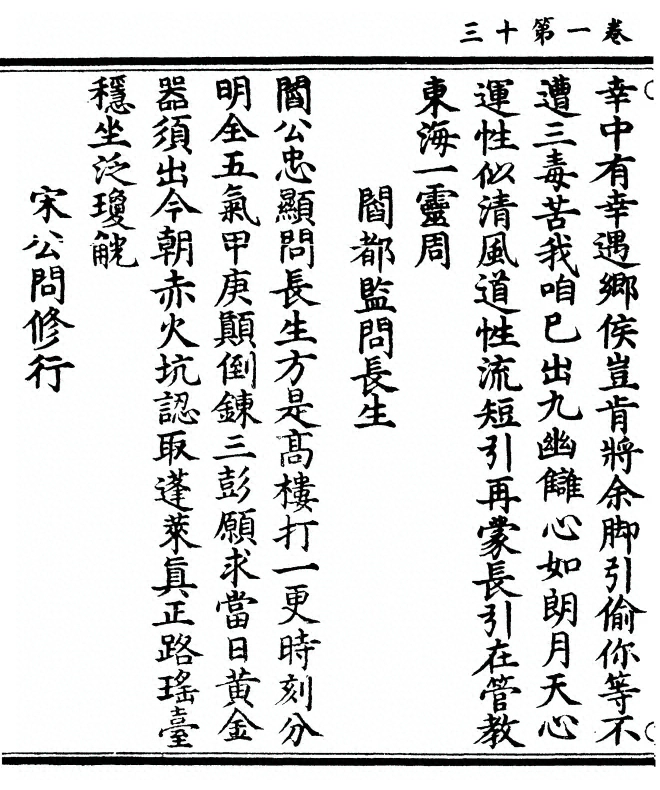 三十第一卷
幸中有幸遇鄉侯豈肯將余脚引偷你等不
遭三毒苦我咱已出九幽讎心如朗月天心
運性似清風道性流短引再蒙長引在管教
東海一靈周
閻都監問長生
閻公忠顯問長生方是高樓打一更時刻分
明全五氣甲庚顛倒鍊三彭願求當日黃金
器須出今朝赤火坑認取蓬萊眞正路瑤臺
穩坐泛瓊觥
宋公問修行